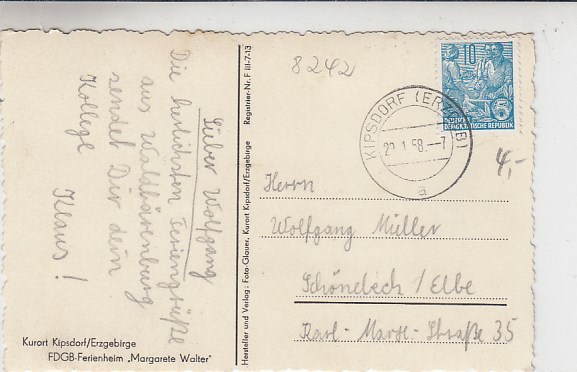 8242
Lieber Wolfgang
Die herlichsten Feriengrüße
aus Waldbärenburg
sendet Dir dein
Kollege Klaus!
Kurort Kipsdorf/Erzgebirge
FDGB-Ferienheim „Margarete Walter"
Registrier-Nr. F III-7-13
Hersteller und Verlag: Foto-Glauer, Kurort Kipsdorf/Erzgebirge
10
5
DEUTSCHE
DEMOKRATISCHE REPUBLIK
KIPSDORF (ERZGEB)
22.1.58.–7
a
4,-
Herrn
Wolfgang Müller
Schönebech/Elbe
Karl-Marx-Straße 35